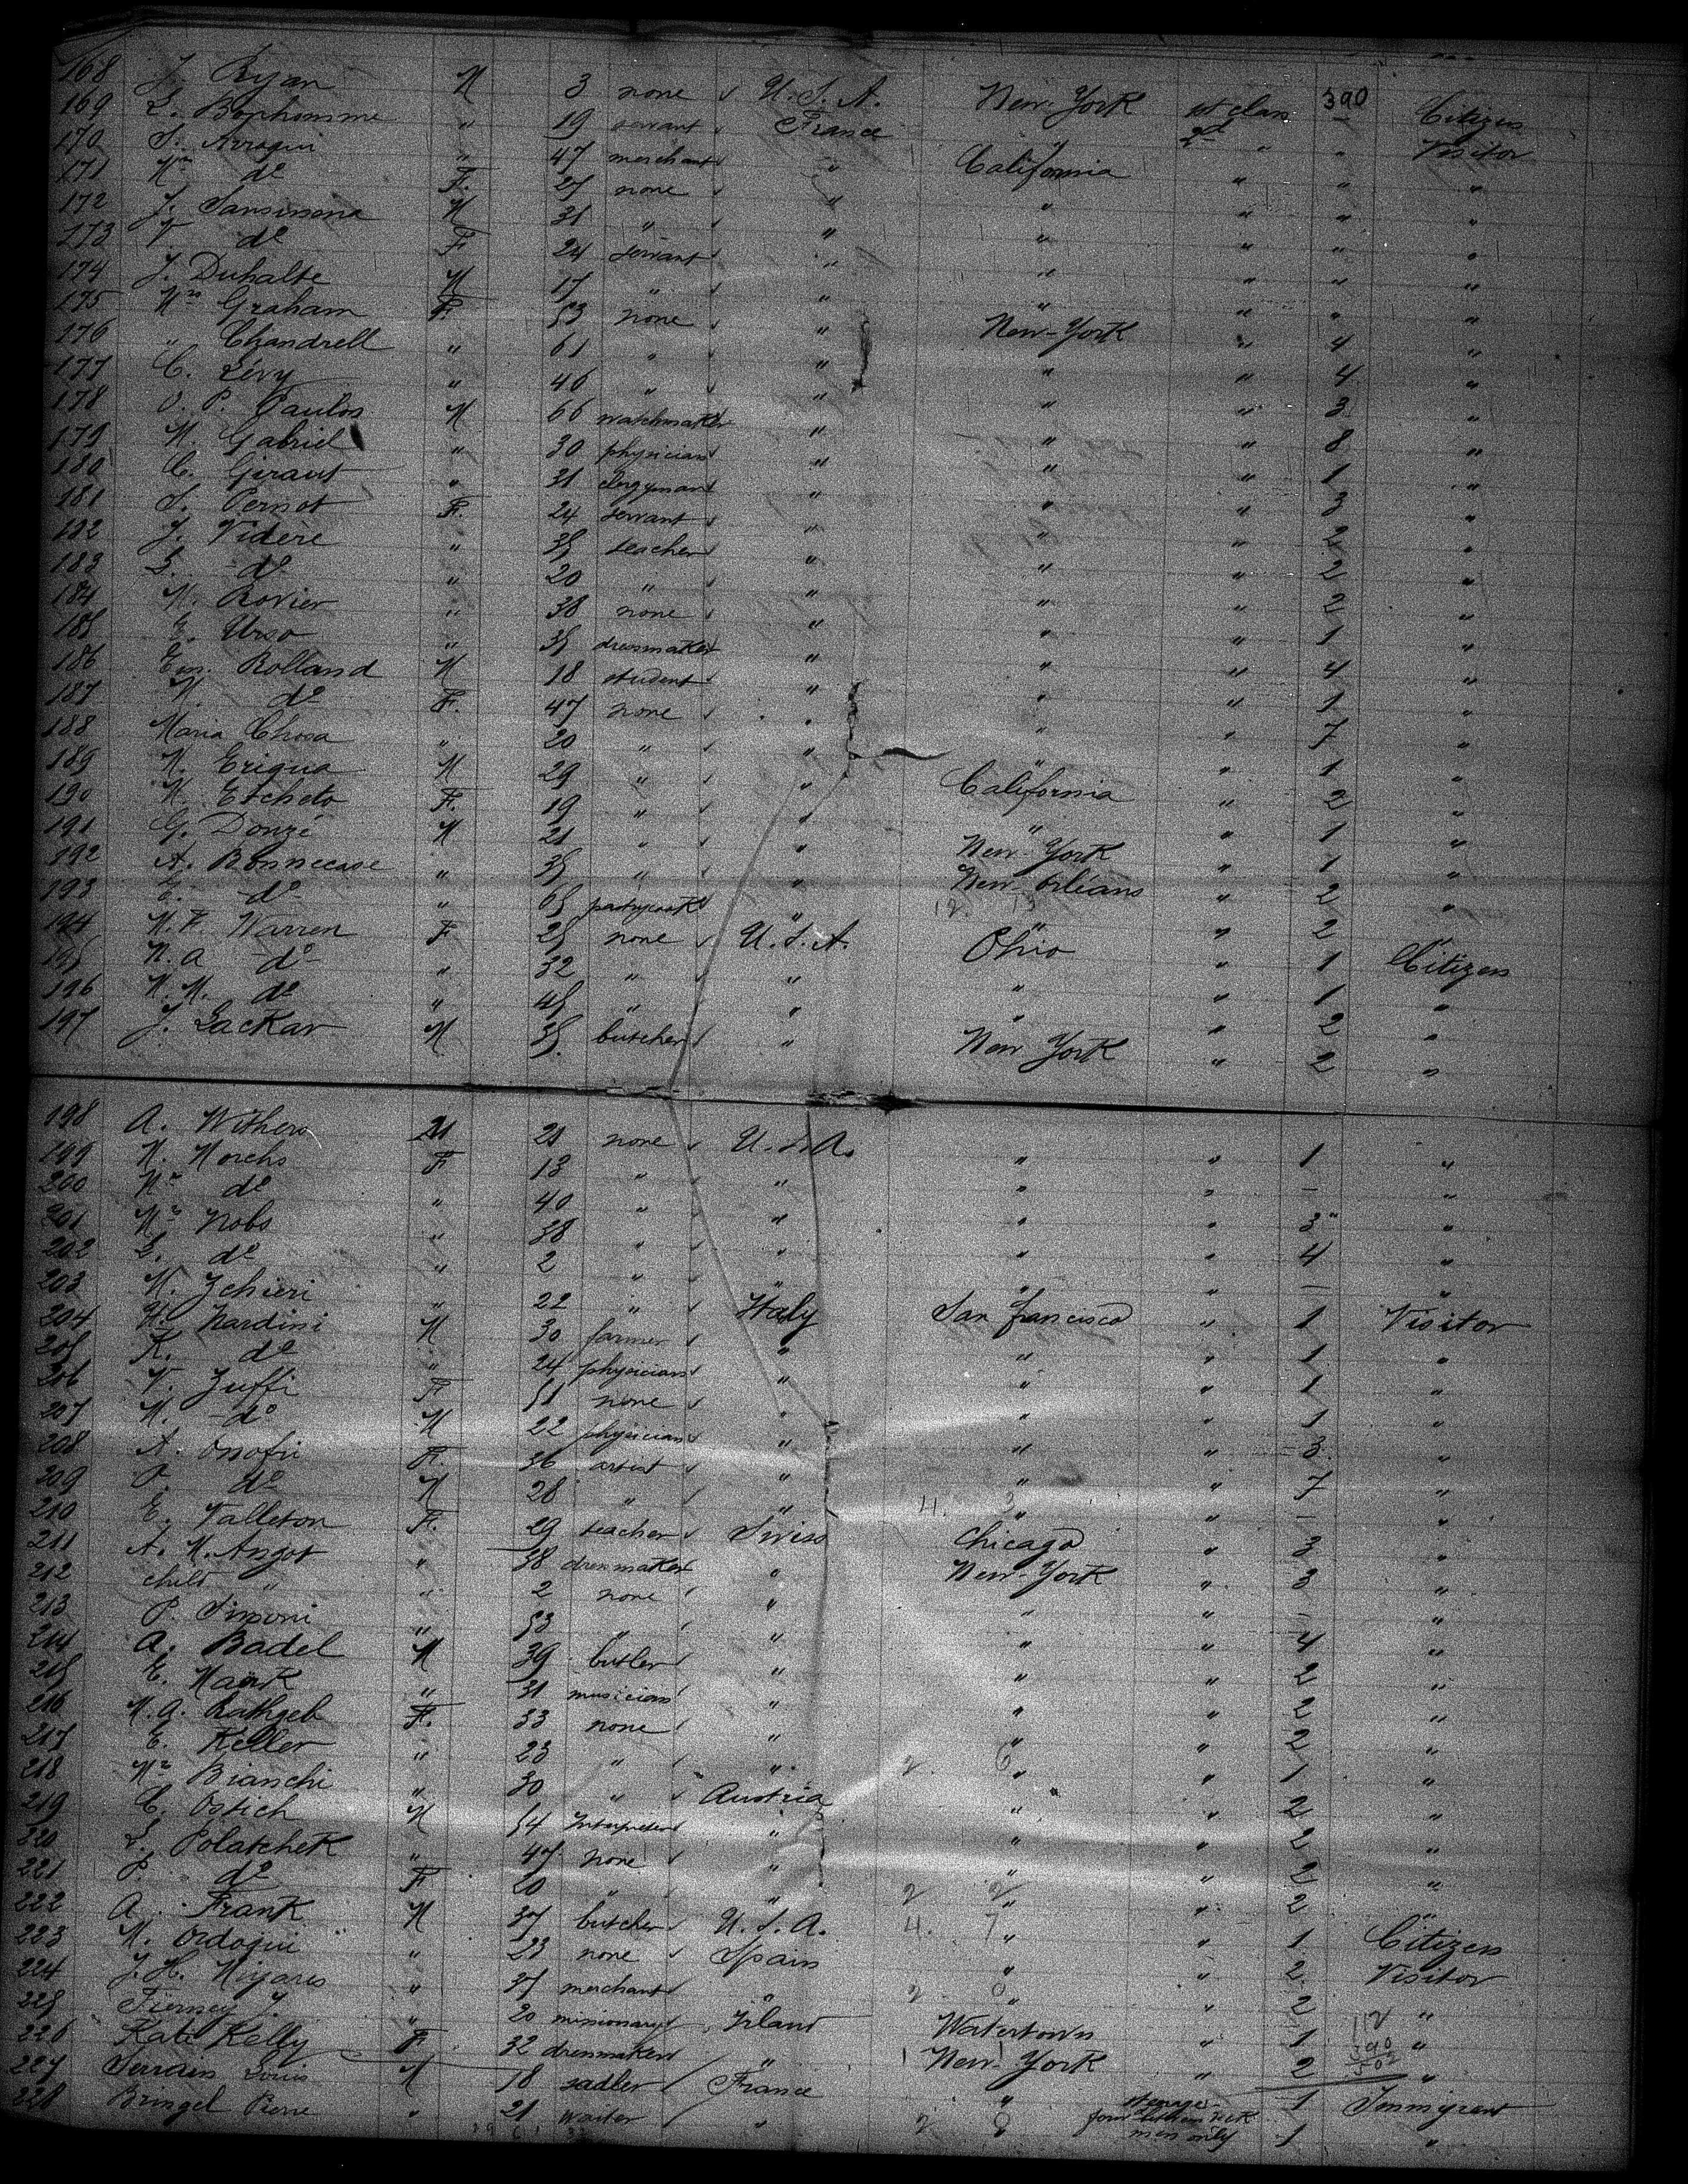 168 J. Ryan M 3 none U.S.A. New-York 1st class 390 Citizen
169 L. Bonhomme " 19 servant France " 2d " " Visitor
170 S. Arragui " 47 merchant " California " " "
171 Mme do F. 27 none " " " " "
172 J. Sansinena M 31 " " " " " "
173 V do F 24 servant " " " " "
174 J. Duhalte M 17 " " " " " "
175 Mme Graham F. 53 none " New-York " " "
176 " Chandrell " 61 " " " " 4 "
177 C. Lévy " 46 " " " " 4 "
178 O. P. Paulos M 66 watchmaker " " " 3 "
179 M. Gabriel " 30 physician " " " 8 "
180 C. Giraut " 31 clergyman " " " 1 "
181 S. Pernot F. 24 servant " " " 3 "
182 J. Videre " 35 teacher " " " 2 "
183 L. do " 20 " " " " 2 "
184 M. Rovier " 38 none " " " 2 "
185 E. Urso " 35 dressmaker " " " 1 "
186 Em. Rolland M 18 student " " " 4 "
187 M. do F. 47 none " " " 1 "
188 Maria Chosa " 20 " " " " 7 "
189 M. Eriqua M 29 " " California " 1 "
190 M. Etcheto F. 19 " " " " 2 "
191 G. Donzé M 21 " " New-York " 1 "
192 A. Bonnecase " 35 " " New-Orléans " 1 "
193 E. do " 65 pastrycook " " " 2 "
194 M. F. Warren F 25 none U.S.A. Ohio " 2 Citizen
195 N. A do " 32 " " " " 1 "
196 N. M. do " 45 " " " " 1 "
197 J. Lackar M 35. butcher " New York " 2 "
198 A. Withers M 21 none U.S.A. " " 1 "
199 M. Morchs F 13 " " " " - "
200 Mme do " 40 " " " " 3 "
201 Mme Nobs " 38 " " " " 4 "
202 L. do " 2 " " " " - "
203 M. Zchieri " 22 " Italy San francisco " 1 Visitor
204 Nardini M 30 farmer " " " 1 "
205 R. do " 24 physician " " " 1 "
206 V. Zuffi F 51 none " " " 1 "
207 M. do M 22 physician " " " 3 "
208 A. Onofri F. 36 artist " " " 7 "
209 O. do M 28 " " " " - "
210 E. Valleton F. 29 teacher Swiss Chicago " 3 "
211 A. M. Angot " 38 dressmaker " New-York " 3 "
212 child " " 2 none " " " - "
213 P. Simoni " 53 " " " " 4 "
214 A. Badel M 39 butler " " " 2 "
215 E. Maark " 31 musician " " " 2 "
216 M. A. Rathgeb F. 33 none " " " 2 "
217 E. Keller " 23 " " " " 1 "
218 Mme Bianchi " 30 " Austria " " 2 "
219 C. Ostich M 54 Interpreter " " " 2 "
220 L. Polatchek " 47 none " " " 2 "
221 P. do F 20 " " " " 2 "
222 A. Frank M 37 butcher U.S.A. " " 1 Citizen
223 M. Ordoqui " 23 none Spain " " 2 Visitor
224 J. H. Mijares " 37 merchant " " " 2 "
225 Tierney J. " 20 missionary Irland Watertown " 1 "
226 Kate Kelly F 32 dressmaker " New-York " 2 "
112
390
502
227 Serrain Louis M 18 sadler France " steerage 1 Immigrant
228 Bringel Pierre " 21 waiter " " men only 1 "